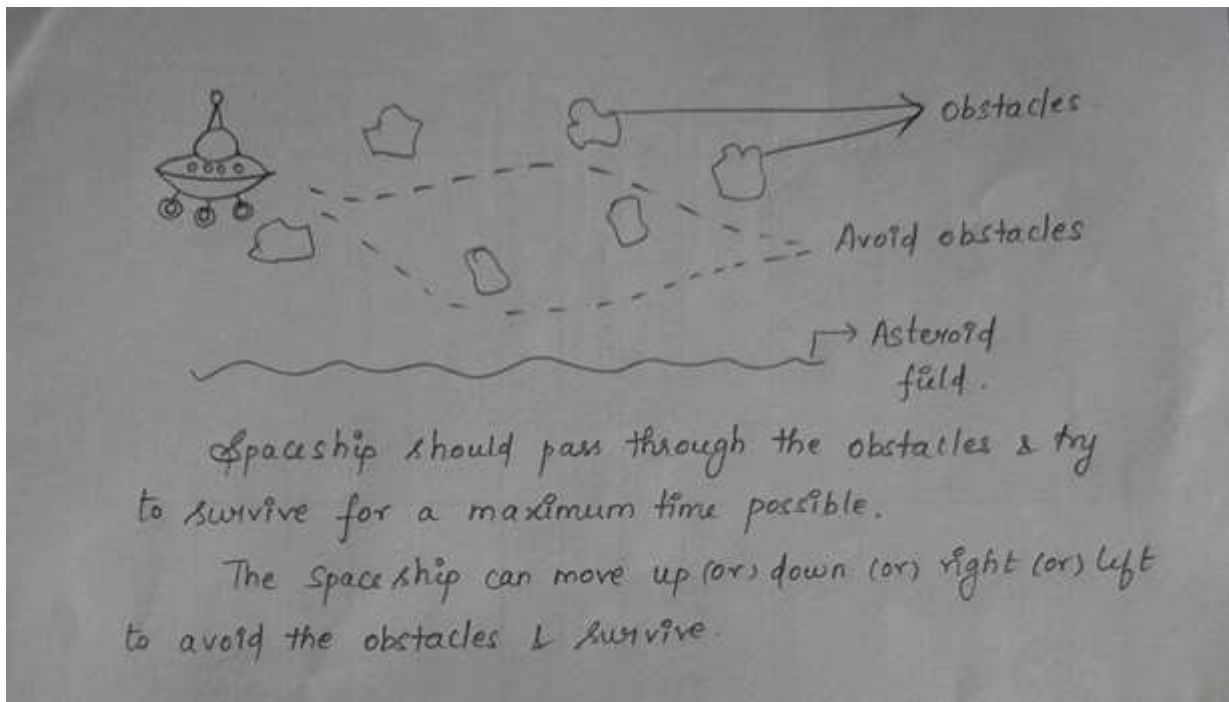 Obstacles
Avoid obstacles
Asteroid
field.
Spaceship should pass through the obstacles & try
to survive for a maximum time possible.
The space ship can move up (or) down (or) right (or) left
to avoid the obstacles & survive.